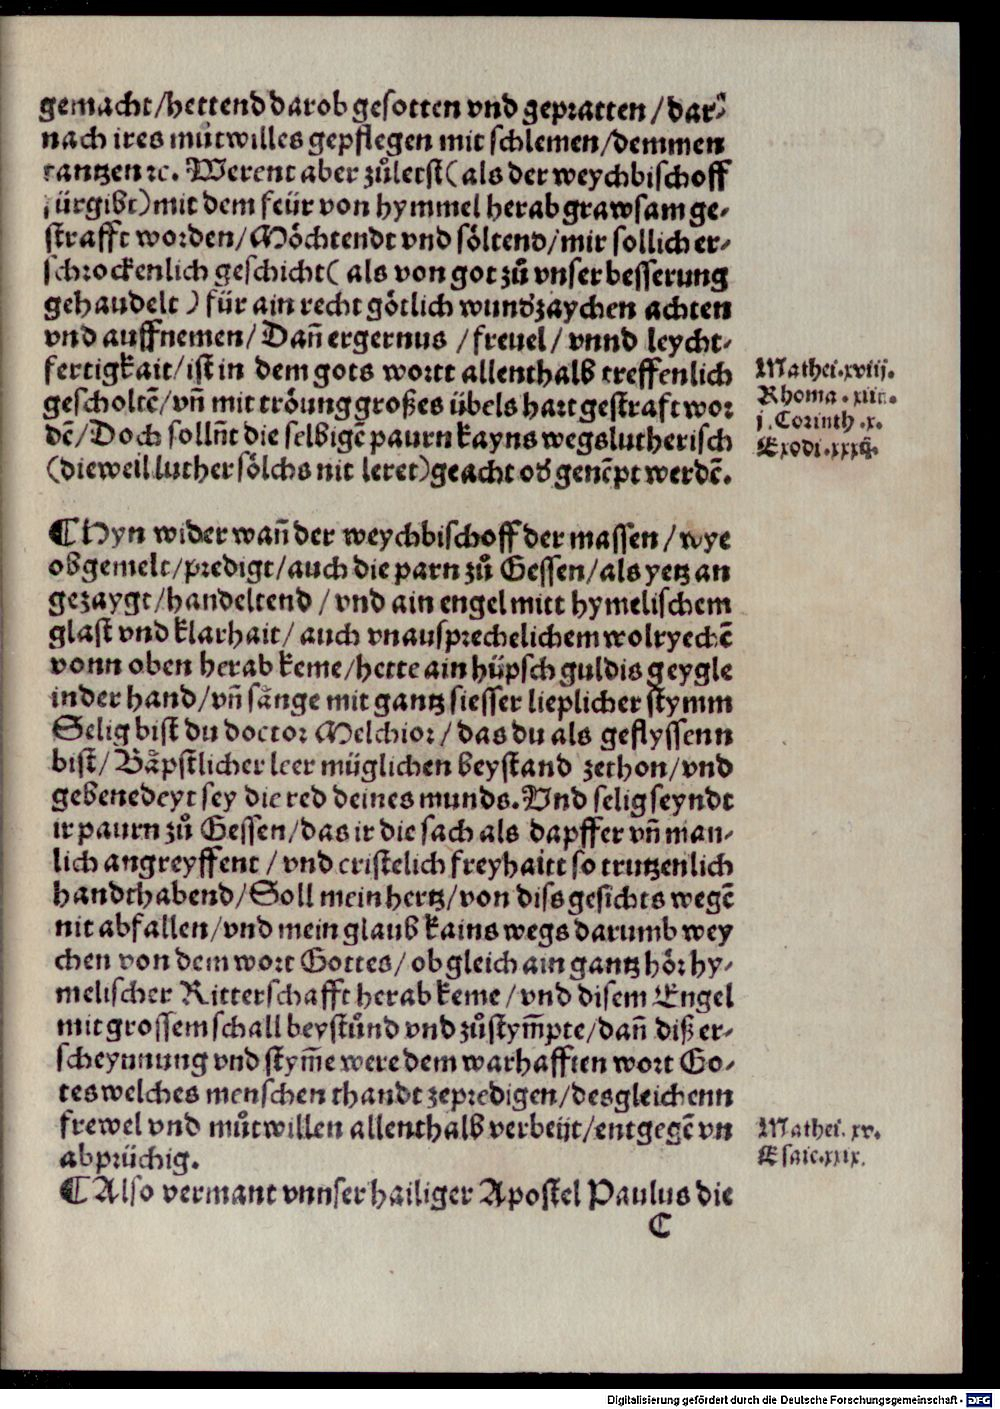 gemacht/hettend darob gesotten vnd gepratten/dar⸗
nach ires můtwilles gepflegen mit schlemen/demmen
tantzen ꝛc. Werent aber zůletst(als der weychbischoff
fürgibt)mit dem feür von hymmel herab grawsam ge⸗
strafft worden/Möchtendt vnd söltend/mir sollich er⸗
schrockenlich geschicht( als von got zů vnser besserung
gehandelt ) für ain recht götlich wundzaychen achten
vnd auffnemen/Dañ ergernus /freuel/ vnnd leycht⸗
fertigkait/ist in dem gots wortt allenthalb treffenlich
gescholtẽ/vñ mit tröung großes übels hart gestraft wor
dẽ/Doch sollñt die selbigẽ paurn kayns wegs lutherisch
(dieweil luther sölchs nit leret)geacht od genẽpt werdẽ.
Mathei.xviij.
Rhoma. xiiii.
j. Corinth .x.
Exodi.xxxij.
¶Hyn wider wañ der weychbischoff der massen/wye
obgemelt/predigt/auch die parn zů Gessen/als yetz an
gezaygt/handeltend / vnd ain engel mitt hymelischem
glast vnd klarhait/ auch vnausprechelichem wolryechẽ
vonn oben herab keme/hette ain hüpsch guldis geygle
in der hand/vñ sänge mit gantz siesser lieplicher stymm
Selig bist du doctor Melchior/das du als geflyssenn
bist/Bäpstlicher leer müglichen beystand zethon/vnd
gebenedeyt sey die red deines munds.Vnd selig seyndt
ir paurn zů Gessen/das ir die sach als dapffer vñ man⸗
lich angreyffent / vnd cristelich freyhaitt so trutzenlich
handthabend/Soll mein hertz/von diss gesichts wegẽ
nit abfallen/vnd mein glaub kains wegs darumb wey
chen von dem wort Gottes/ob gleich ain gantz hör hy⸗
melischer Ritterschafft herab keme/vnd disem Engel
mit grossem schall beystůnd vnd zůstym̃pte/dañ diß er⸗
scheynnung vnd stym̃e were dem warhafften wort Go⸗
tes welches menschen thandt zepredigen/desgleichenn
frewel vnd můtwillen allenthalb verbeüt/entgegẽ vn
abprüchig.
Mathei. xv.
Esaie.xxix.
¶Also vermant vnnser hailiger Apostel Paulus die
C
Digitalisierung gefördert durch die Deutsche Forschungsgemeinschaft - DFG